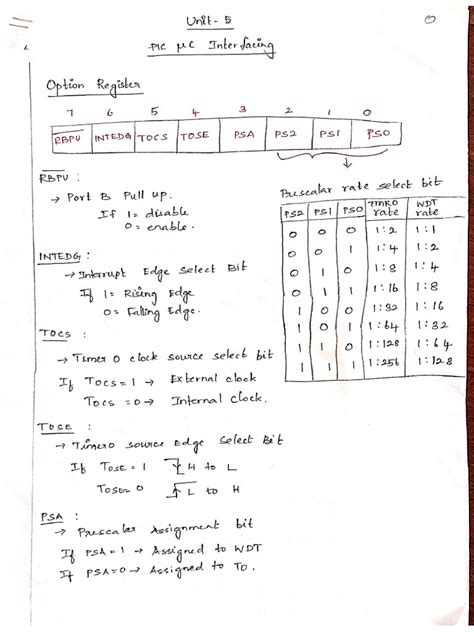 Unit - 5
PIC μC Interfacing
Option Register
7 6 5 4 3 2 1 0
RBPU INTEDG TOCS TOSE PSA PS2 PS1 PS0
RBPU :
→ Port B Pull up.
If 1 = disable
0 = enable.
Prescalar rate select bit
PS2 PS1 PS0 TMR0 rate WDT rate
0 0 0 1:2 1:1
0 0 1 1:4 1:2
0 1 0 1:8 1:4
0 1 1 1:16 1:8
1 0 0 1:32 1:16
1 0 1 1:64 1:32
1 1 0 1:128 1:64
1 1 1 1:256 1:128
INTEDG :
→ Interrupt Edge Select Bit
If 1 = Rising Edge
0 = Falling Edge.
TOCS :
→ Timer 0 clock source select bit
If TOCS = 1 → External clock
TOCS = 0 → Internal clock.
TOSE :
→ Timer0 source Edge Select Bit
If TOSE = 1 H to L
TOSE = 0 L to H
PSA :
→ Prescalar Assignment bit
If PSA = 1 → Assigned to WDT
If PSA = 0 → Assigned to T0.